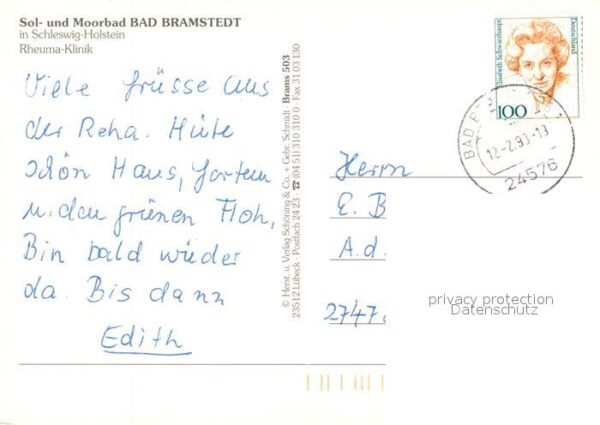 Sol- und Moorbad BAD BRAMSTEDT
in Schleswig-Holstein
Rheuma-Klinik
Viele Grüsse aus
der Reha. Hüte
schön Haus, Garten
u. den grünen Floh,
Bin bald wieder
da. Bis dann
Edith
© Herst. u. Verlag Schöning & Co. + Gebr. Schmidt · Brams 503
23512 Lübeck · Postfach 24 23 · ☎ (04 51) 310 310 0 · Fax 31 03 130
Elisabeth Schwarzhaupt
Deutschland
100
BAD
24576
Herrn
E. B
A. d.
2747
privacy protection
Datenschutz